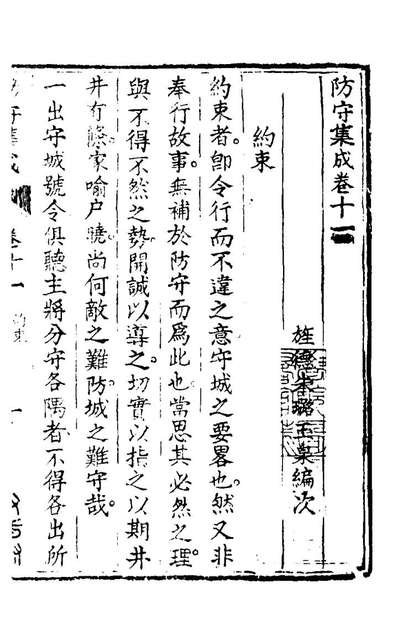 防守集成卷十一
旌德朱璐玉菓編次
約束
約束者卽令行而不違之意守城之要畧也然又非
奉行故事無補於防守而爲此也當思其必然之理
與不得不然之勢開誠以導之切實以指之以期井
井有條家喻户曉尚何敵之難防城之難守哉
一出守城號令俱聽主將分守各隅者不得各出所
守集成
卷十一
約束
一